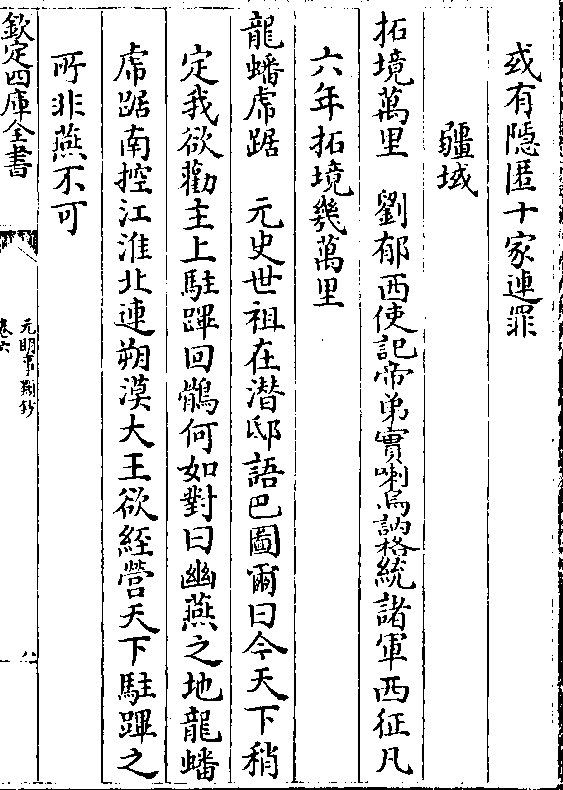 或有隱匿十家連罪
疆域
拓境萬里　劉郁西使記帝弟實喇烏訥格統諸軍西征凡
六年拓境幾萬里
龍蟠虎踞　元史世祖在潛邸語巴圖爾曰今天下稍
定我欲勸主上駐蹕回鶻何如對曰幽燕之地龍蟠
虎踞南控江淮北連朔漠大王欲經營天下駐蹕之
所非燕不可
欽定四庫全書
元明事類鈔
卷六
八